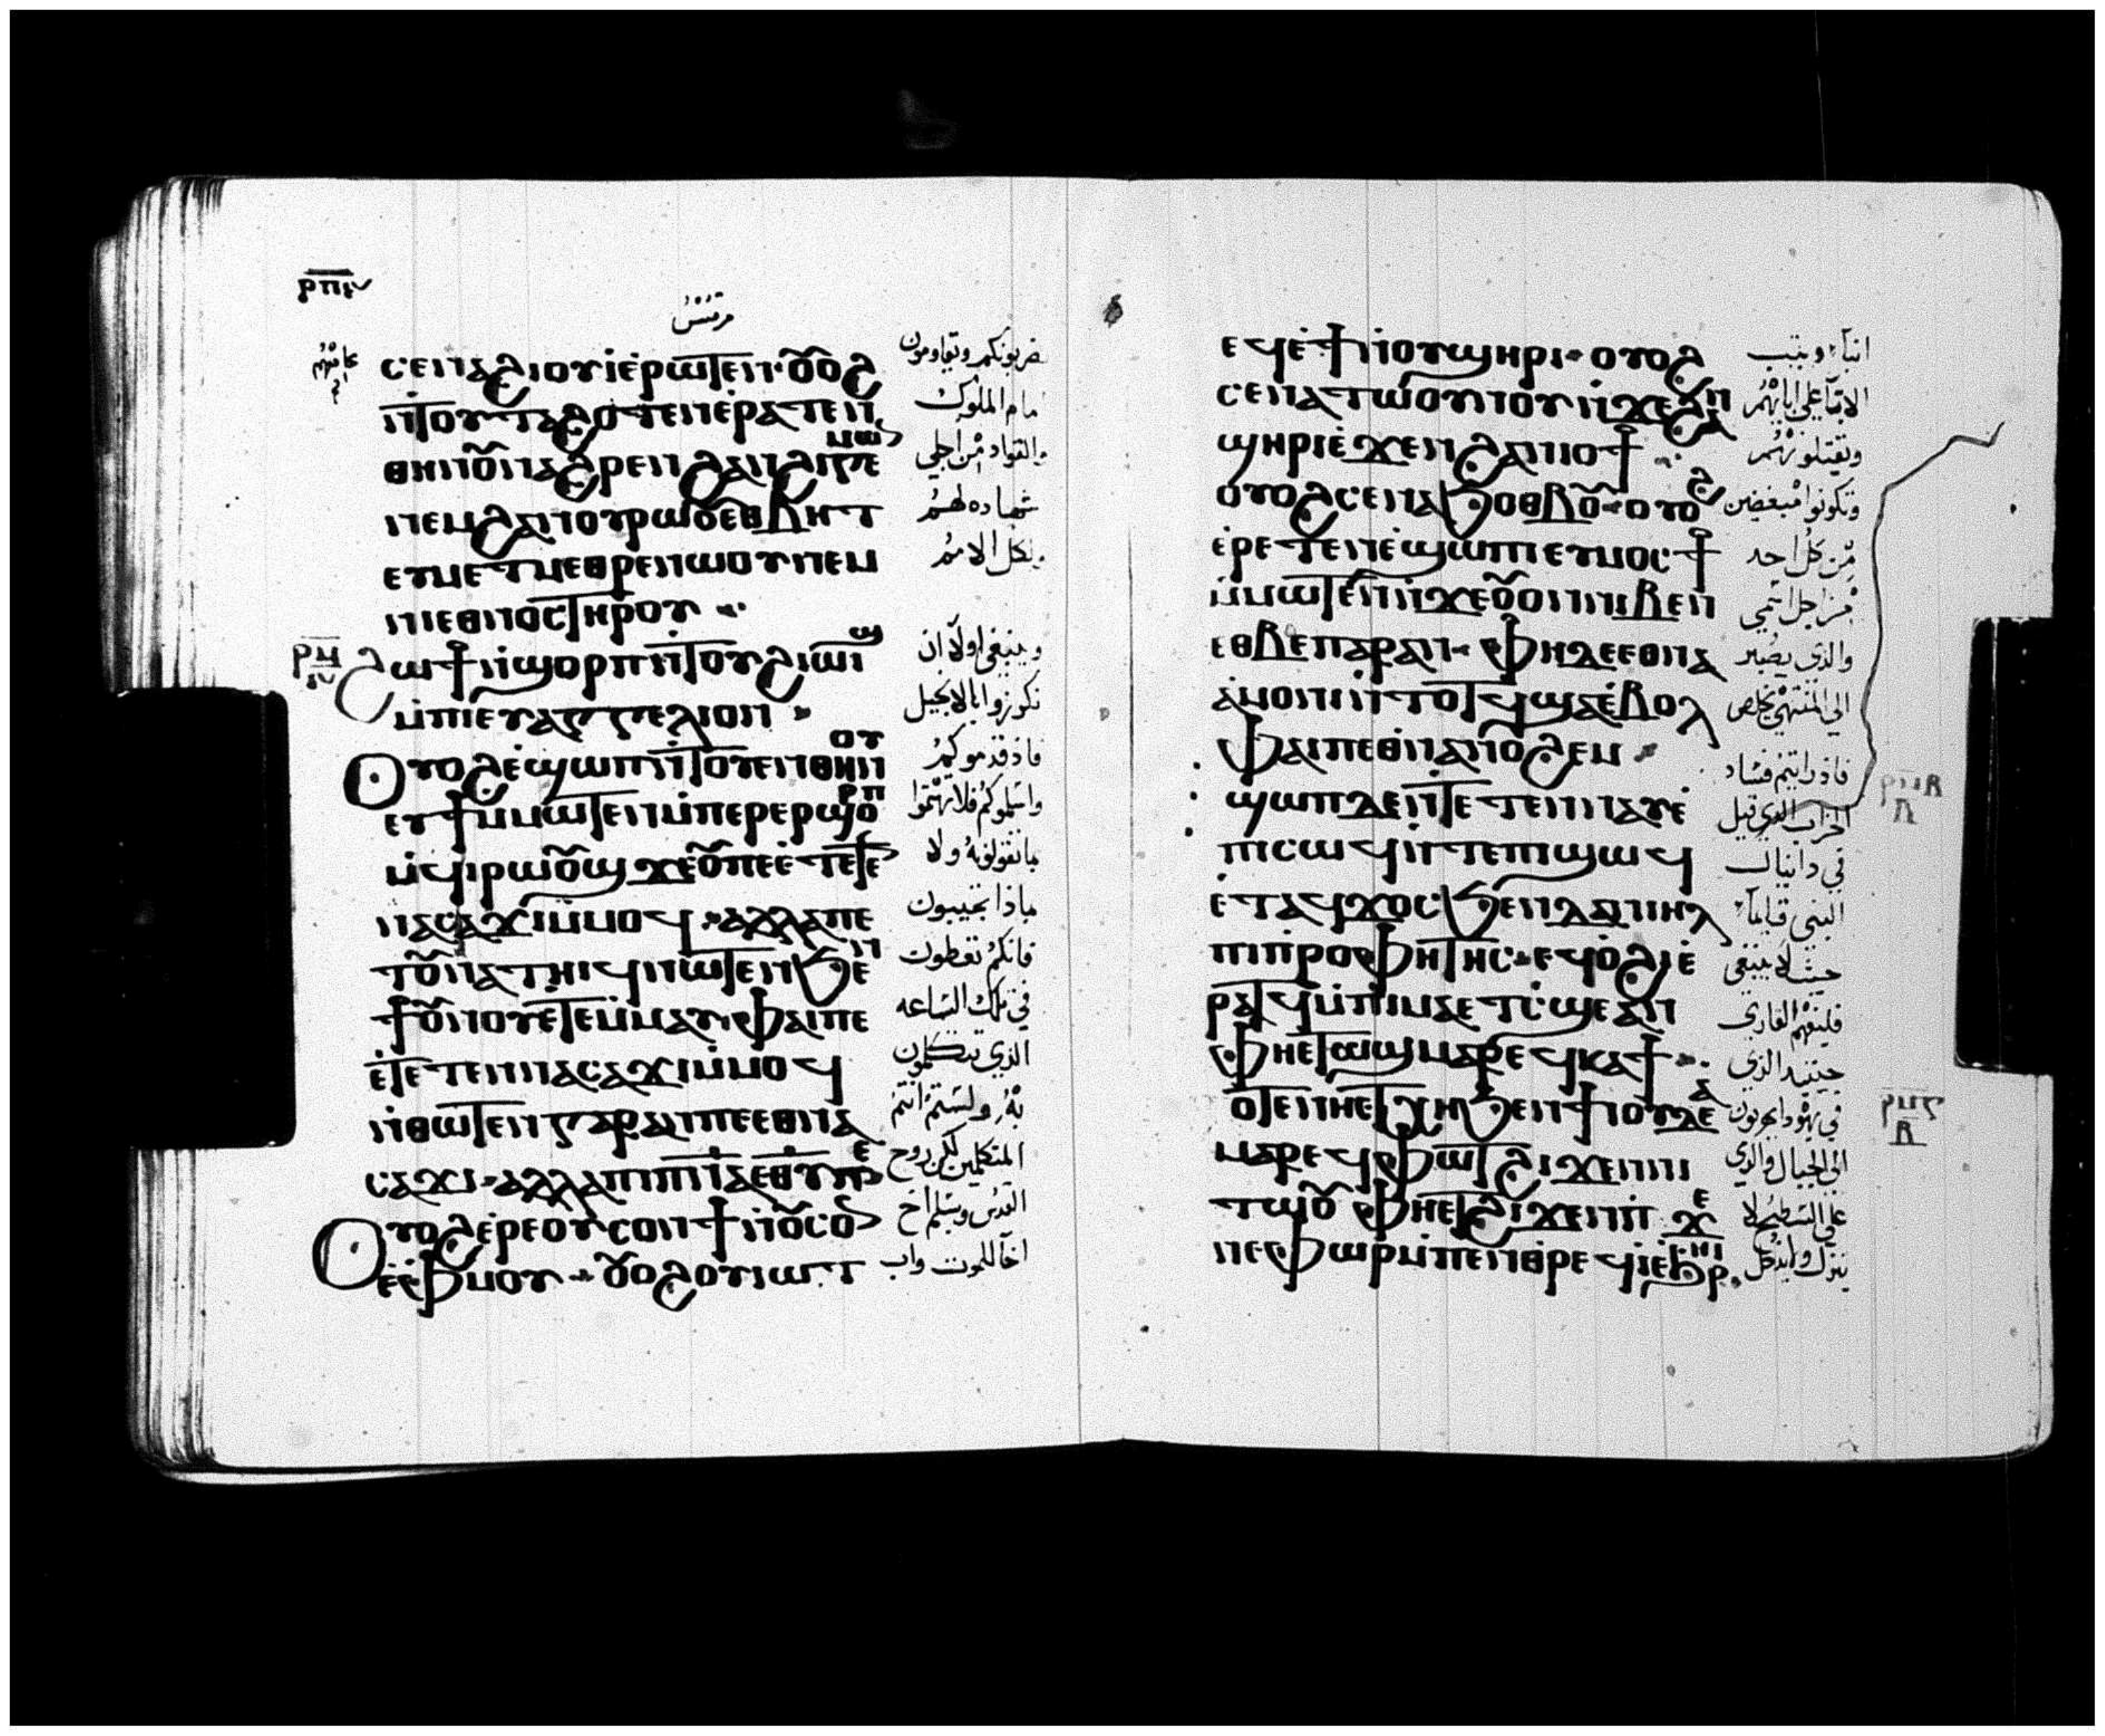 ⲣⲡⲋ
مرقس
ⲥⲉⲛⲁϩⲓⲟⲩⲓⲉⲣⲱⲧⲉⲛ· ⲟⲩⲟϩ
ⲛⲧⲟⲩⲧⲁϩⲟⲧⲉⲛⲉⲣⲁⲧⲉⲛ
ⲑⲏⲛⲟⲩⲛⲁϩⲣⲉⲛϩⲁⲛϩⲏⲅⲉⲙⲱⲛ
ⲛⲉⲙϩⲁⲛⲟⲩⲣⲱⲟⲩⲉⲑⲃⲏⲧ
ⲉⲩⲙⲉⲧⲙⲉⲑⲣⲉⲛⲱⲟⲩⲛⲉⲙ
ⲛⲓⲉⲑⲛⲟⲥⲧⲏⲣⲟⲩ
ϩⲱϯⲛϣⲟⲣⲡⲛⲧⲟⲩϩⲓⲱⲓϣ
ⲙⲡⲓⲉⲩⲁⲅⲅⲉⲗⲓⲟⲛ
ⲟⲩⲟϩⲉϣⲱⲡⲛⲧⲟⲩⲉⲛⲑⲏⲛⲟⲩ
ⲉⲩϯⲙⲙⲱⲧⲉⲛⲙⲡⲉⲣⲉⲣϣⲟⲣⲡ
ⲙϥⲓⲣⲱⲟⲩϣϫⲉⲟⲩⲡⲉⲉⲧⲉⲧⲉ
ⲛⲁⲥⲁϫⲓⲙⲙⲟϥ· ⲁⲗⲗⲁⲡⲉ
ⲧⲟⲩⲛⲁⲧⲏⲓϥⲛⲱⲧⲉⲛϧⲉⲛ
ϯⲟⲩⲛⲟⲩⲉⲧⲉⲙⲙⲁⲩ· ⲫⲁⲓⲡⲉ
ⲉⲧⲉⲧⲉⲛⲛⲁⲥⲁϫⲓⲙⲙⲟϥ
ⲛⲑⲱⲧⲉⲛⲅⲁⲣⲁⲛⲡⲉⲉⲑⲛⲁ
ⲥⲁϫⲓ· ⲁⲗⲗⲁⲡⲓⲡⲛⲁⲉⲑⲩ ⲡⲉ
ⲟⲩⲟϩⲉⲣⲉⲟⲩⲥⲟⲛϯⲛⲟⲩⲥⲟ
ⲉⲫⲙⲟⲩ· ⲟⲩⲟϩⲟⲩⲓⲱⲧ
يضربونكم وتقاومون
امام الملوك
والقواد من اجلي
شهاده لهم
ولكل الامم
وينبغي اولا ان
تكرزوا بالانجيل
فاذ قدموكم
واسلموكم فلا تهتموا
بما تقولونه ولا
بماذا تجيبون
فانكم تعطون
في تلك الساعه
الذي تتكلمون
به ولستم انتم
المتكلمين لكن روح
القدس ويسلم اخ
اخا للموت واب
ⲉϥⲉϯⲛⲟⲩϣⲏⲣⲓ· ⲟⲩⲟϩ
ⲥⲉⲛⲁⲧⲱⲟⲩⲛⲟⲩⲛϫⲉϩⲁⲛ
ϣⲏⲣⲓⲉϫⲉⲛϩⲁⲛⲓⲟϯ
ⲟⲩⲟϩⲥⲉⲛⲁϧⲟⲑⲃⲟⲩ· ⲟⲩⲟϩ
ⲉⲣⲉⲧⲉⲛⲉϣⲱⲡⲓⲉⲩⲙⲟⲥϯ
ⲙⲙⲱⲧⲉⲛⲛϫⲉⲟⲩⲟⲛⲛⲓⲃⲉⲛ
ⲉⲑⲃⲉⲡⲁⲣⲁⲛ· ⲫⲏⲇⲉⲉⲑⲛⲁ
ⲁⲙⲟⲛⲓⲛⲧⲟⲧϥϣⲁⲉⲃⲟⲗ
ⲫⲁⲓⲡⲉⲑⲛⲁⲛⲟϩⲉⲙ
ϣⲱⲡⲇⲉⲛⲧⲉⲧⲉⲛⲛⲁⲩⲉ
ⲡⲓⲥⲱϥⲛⲧⲉⲡⲓϣⲱϥ
ⲉⲧⲁϥϫⲟⲥϧⲉⲛⲇⲁⲛⲓⲏⲗ
ⲡⲓⲡⲣⲟⲫⲏⲧⲏⲥ· ⲉϥⲟϩⲓⲉ
ⲣⲁⲧϥⲙⲡⲓⲙⲁⲉⲧⲥϣⲉⲁⲛ
ⲫⲏⲉⲧⲱϣⲙⲁⲣⲉϥⲕⲁϯ
ⲟⲧⲉⲛⲏⲉⲧⲭⲏϧⲉⲛϯⲓⲟⲩⲇⲉⲁ
ⲙⲁⲣⲉϥⲫⲱⲧϩⲓϫⲉⲛⲛⲓ
ⲧⲱⲟⲩ ⲫⲏⲉⲧϩⲓϫⲉⲛⲡ ϫⲉ
ⲛⲉⲫⲱⲣⲙⲡⲉⲛⲑⲣⲉϥⲓⲉϧⲣⲏⲓ
ابنا ويثب
الابنآ على ابايهم
ويقتلونهم
وتكونوا مبغضين
من كل احد
من اجل اسمي
والذي يصبر
الي المنتهي يخلص
فاذ رايتم فساد
الخراب الذي قيل
في دانيال
النبي قايماً
حيث لا ينبغي
فليفهم القاري
حينيذ الذي
في يهودا يهربون
الي الجبال والذي
علي السطح لا
ينزل ولا يدخل